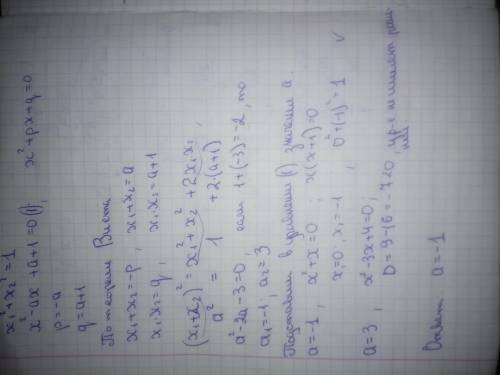 x₁²+x₂² = 1
x²-ax+a+1=0 (1), x²+px+q=0
p=-a
q=a+1
По теореме Виета
x₁+x₂=-p, x₁+x₂=a
x₁·x₂=q, x₁·x₂=a+1
(x₁+x₂)² = x₁²+x₂² + 2x₁x₂,
a² = 1 + 2·(a+1)
a²-2a-3=0, если 1+(-3)=-2, то
a₁=-1, a₂=3
Подставим в уравнение (1) значения a.
a=-1, x²+x=0; x(x+1)=0
x₁=0, x₂=-1 0²+(-1)²=1 ✓
a=3, x²-3x+4=0;
D=9-16=-7<0, ур-е не имеет реше-
ний.
Ответ a=-1